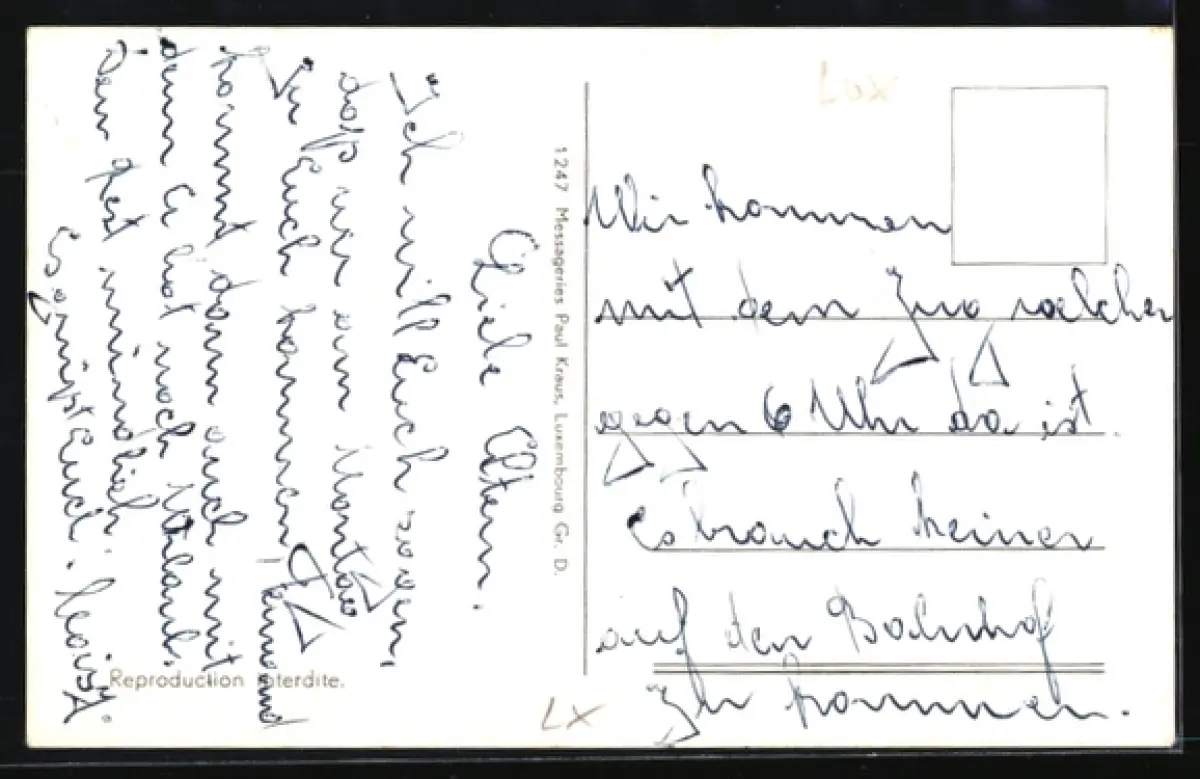 Liebe Eltern.
Ich will Euch sagen,
daß wir am Montag
zu Euch kommen Fernand
kommt dann auch mit
denn er hat noch Urlaub.
Den Rest mündlich.
Es grüßt Euch.
Reproduction interdite.
1247 Messageries Paul Kraus, Luxembourg Gr. D.
LUX
Wir kommen
mit dem Zug welcher
gegen 6 Uhr da ist.
Es brauch keiner
auf den Bahnhof
zu kommen.
LX